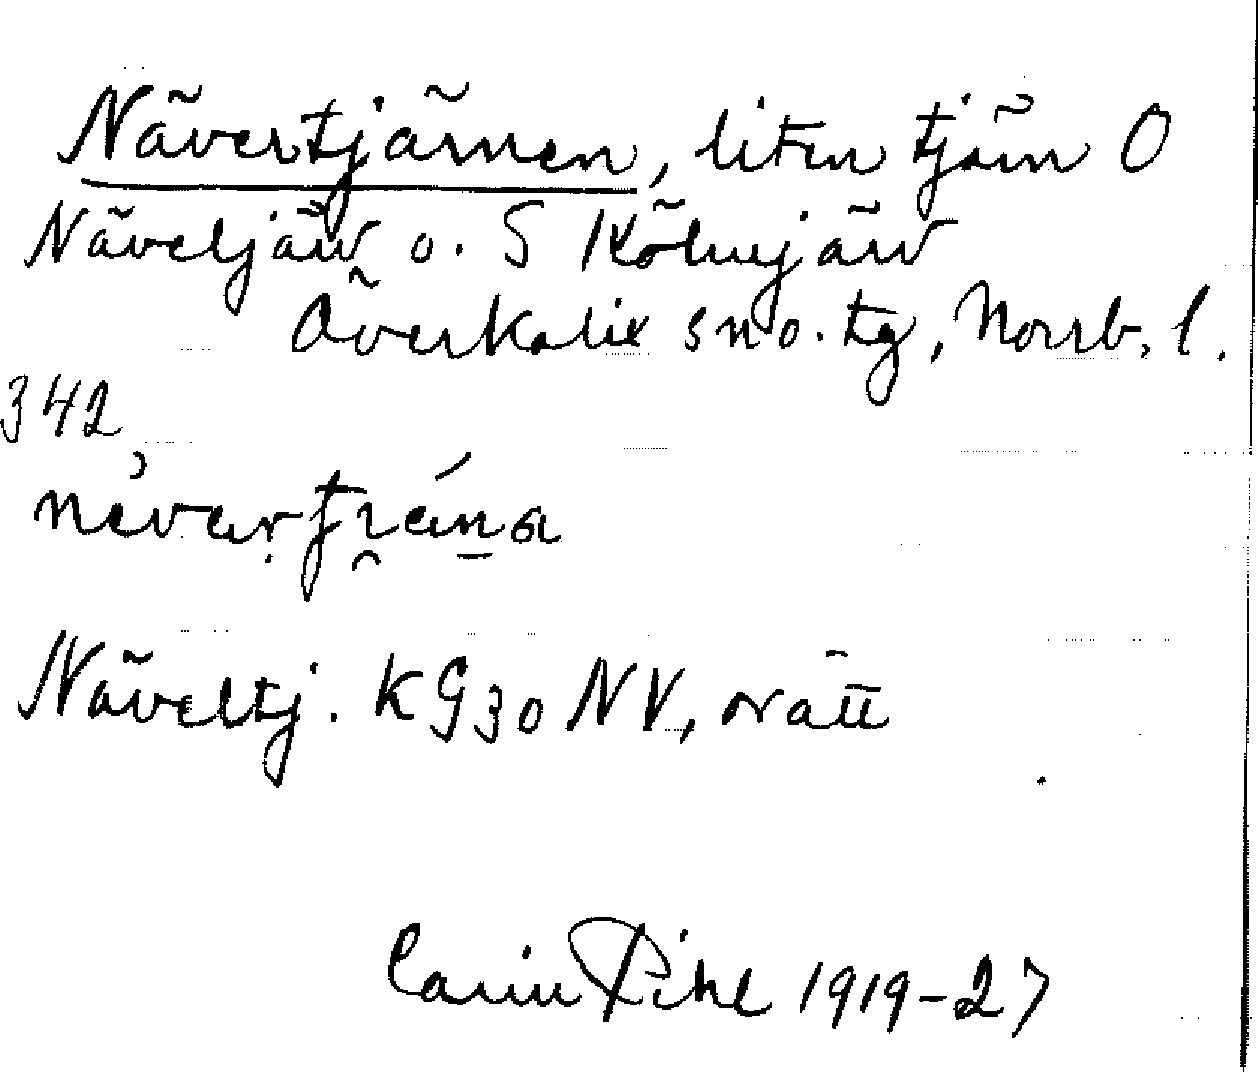 Nävertjärnen, liten tjärn O
Näveljärv o. S Kölmjärv
Överkalix sn o. tg, Norrb. l.
342
Näveltj. KG 30 NV, orätt
Carin Pihl 1919-27